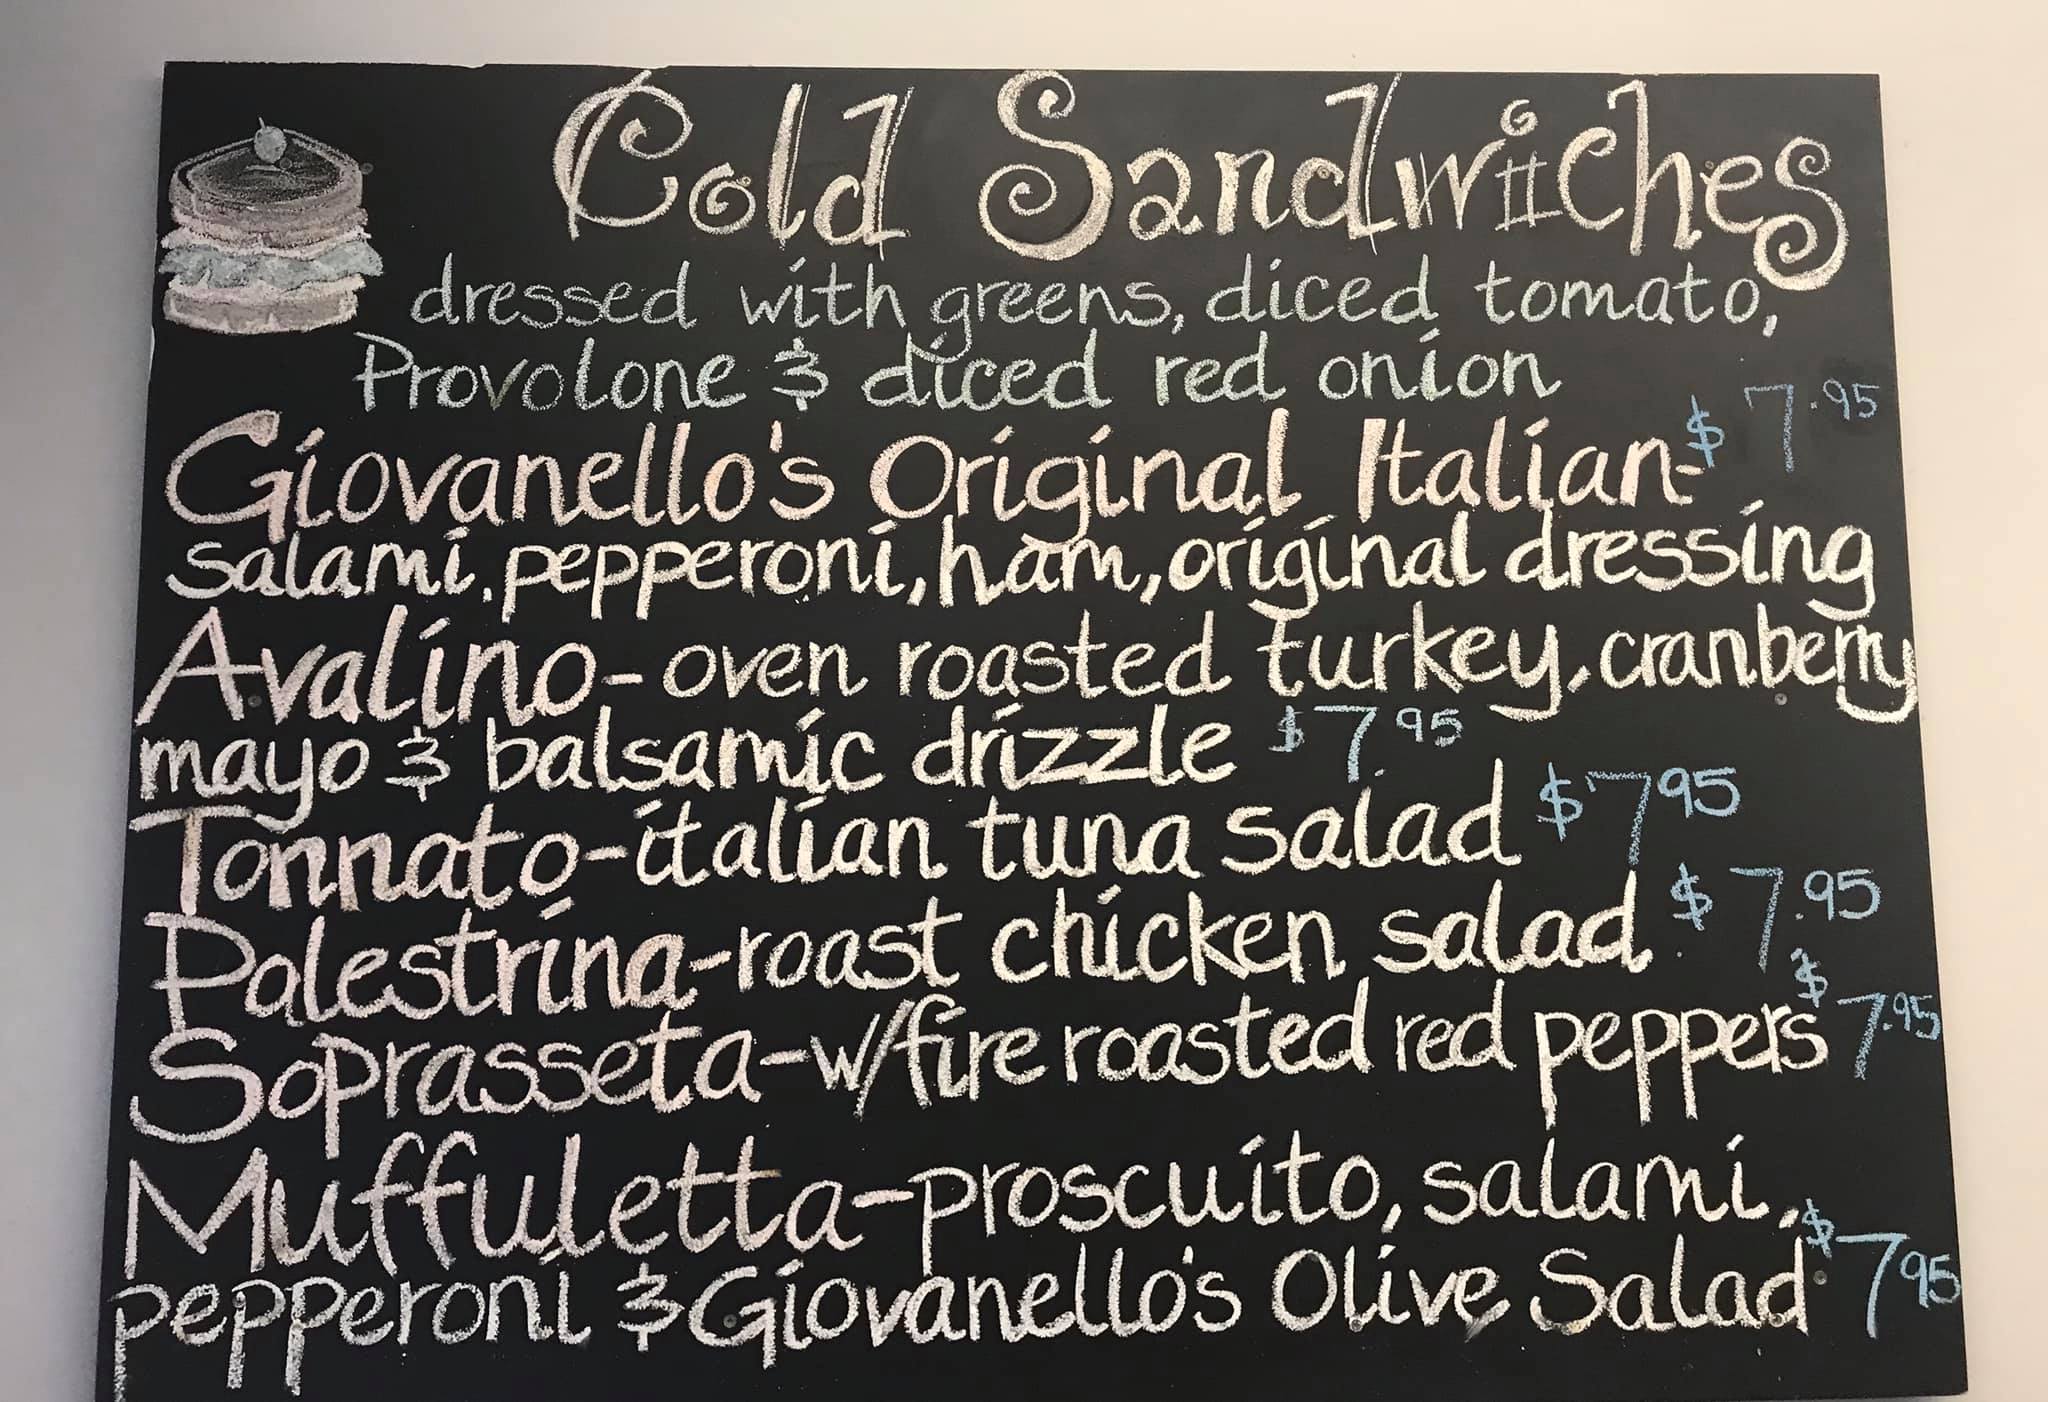 Cold Sandwiches
dressed with greens, diced tomato,
Provolone & diced red onion
Giovanello's Original Italian- $7.95
salami, pepperoni, ham, original dressing
Avalino- oven roasted turkey, cranberry
mayo & balsamic drizzle $7.95
Tonnato-italian tuna salad $7.95
Palestrina-roast chicken salad $7.95
Soprasseta-w/fire roasted red peppers $7.95
Muffuletta-proscuito, salami,
pepperoni & Giovanello's Olive Salad $7.95